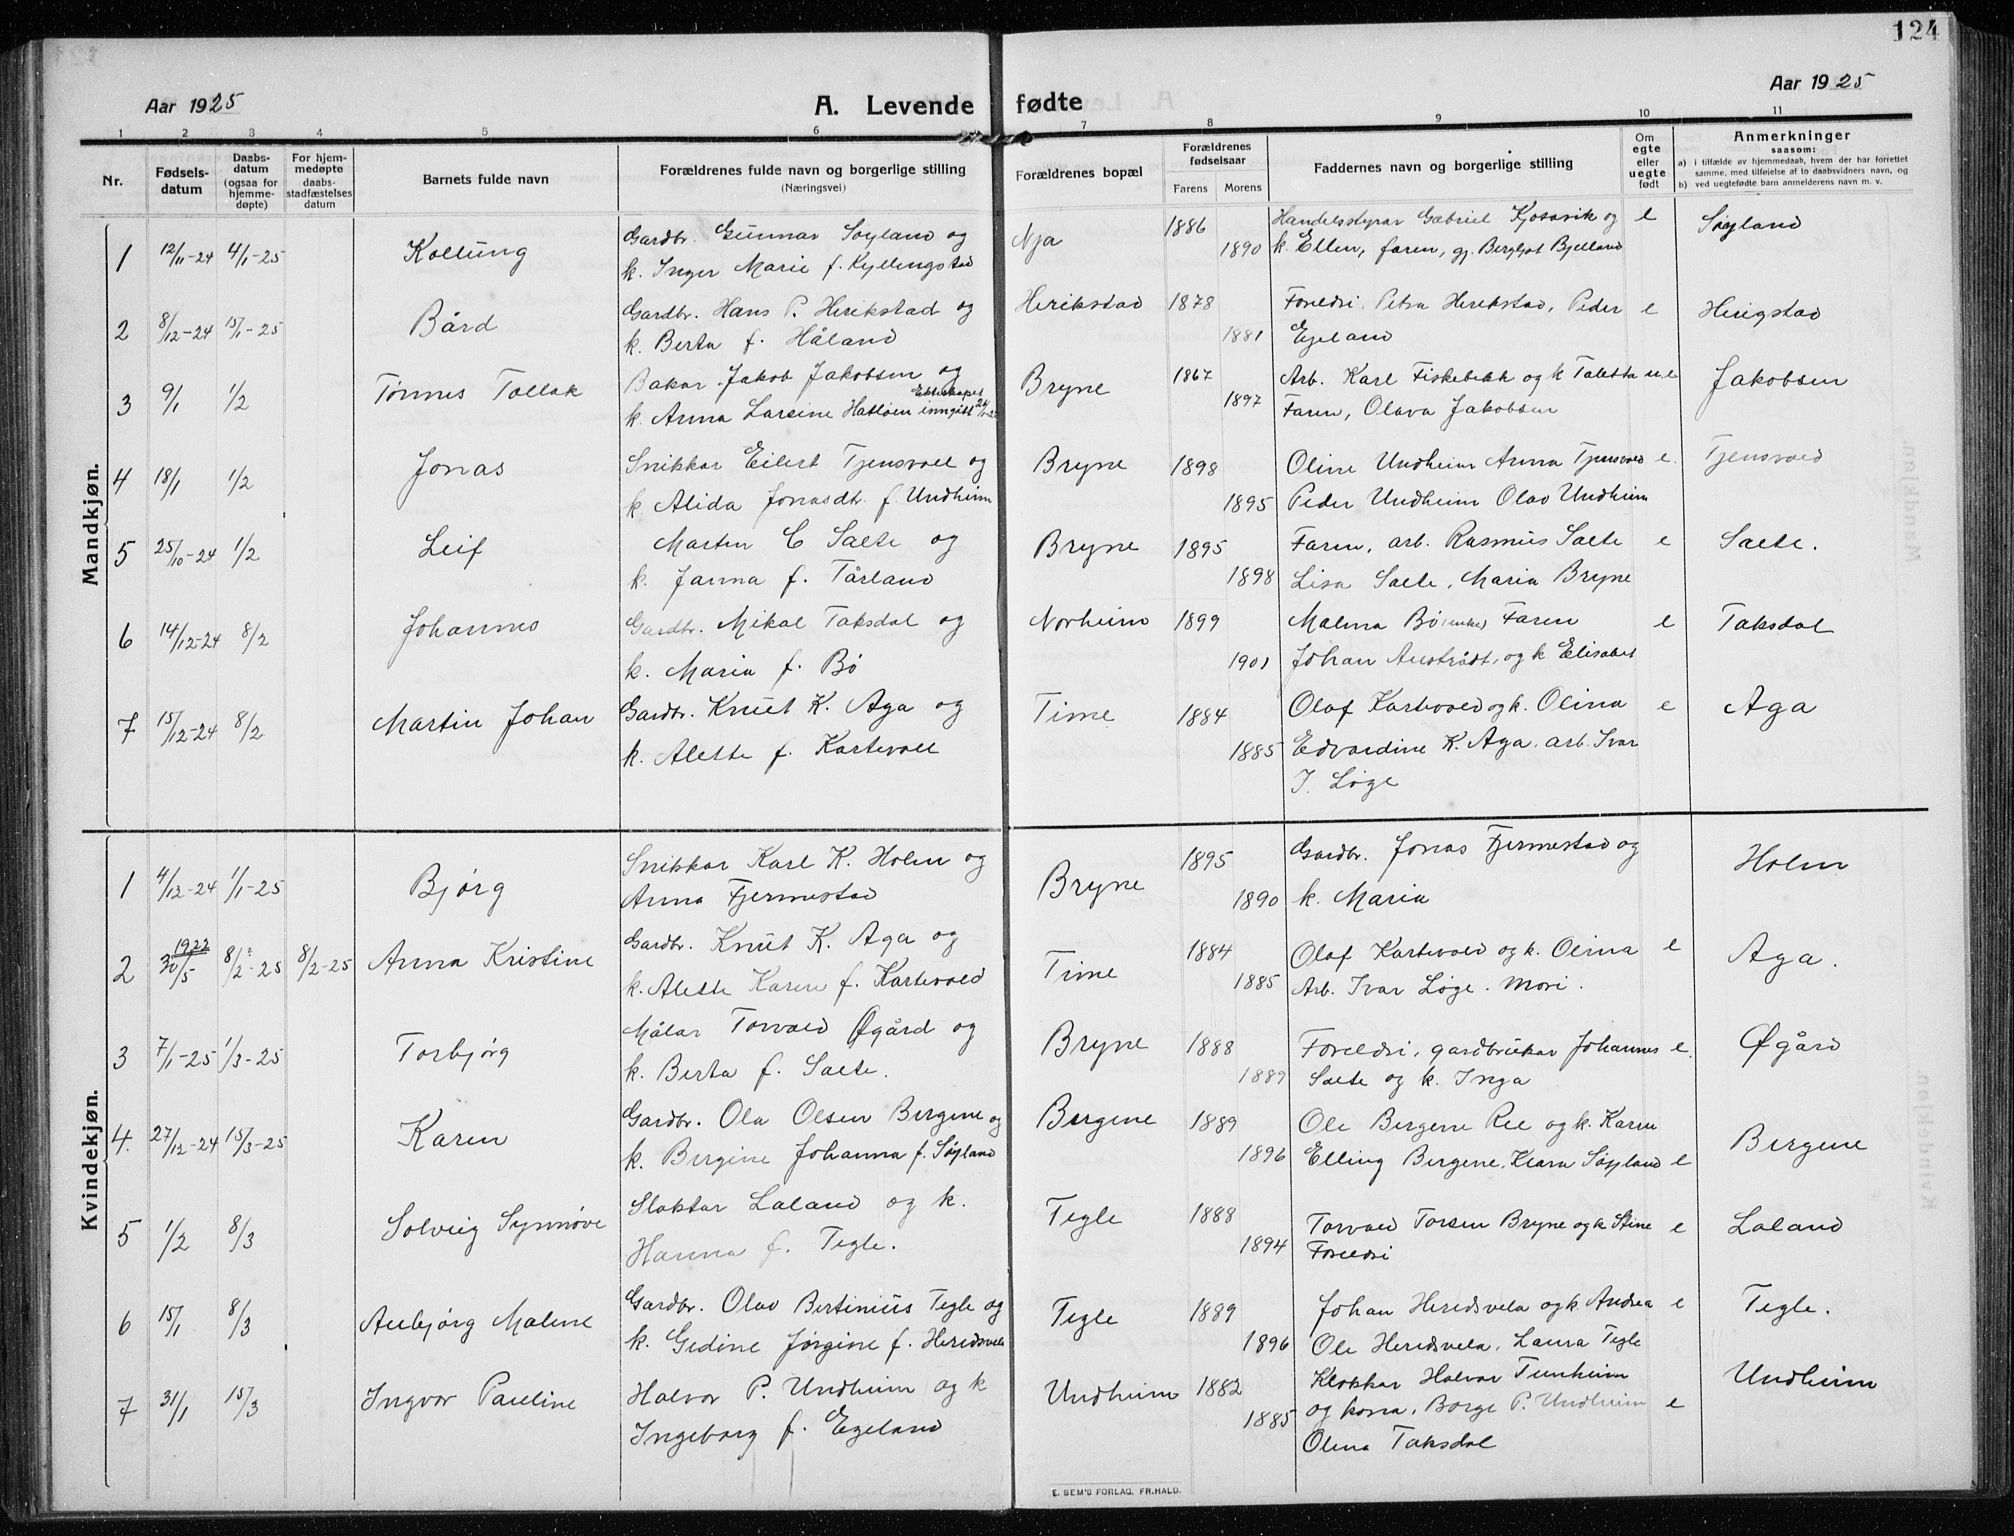 124
Aar 1925
A. Levende fødte
Aar 1925
1 2 3 4 5 6 7 8 9 10 11
Nr.
Fødsels-
datum
Daabs-
datum
(ogsaa for
hjemme-
døpte)
For hjem-
medøpte
daabs-
stadfæstelses
datum
Barnets fulde navn
Forældrenes fulde navn og borgerlige stilling
(Næringsvei)
Forældrenes bopæl
Forældrenes
fødselsaar
Farens Morens
Faddernes navn og borgerlige stilling
Om
egte
eller
uegte
født
Anmerkninger
saasom:
a) i tilfælde av hjemmedaab, hvem der har forrettet
samme, med tilføielse af to daabsvidners navn, og
b) ved uegtefødte barn anmelderens navn m. v.
Mandkjøn.
1 12/11-24 4/1-25 Kollung Gardbr. Gunnar Søyland og Nja 1886 Handelsstyrar Gabriel Kjosavik og e Søyland
k. Inger Marie f. Kyllingstad 1890 k. Ellen, faren, gj. Bergljot Bjelland
2 8/12-24 15/1-25 Bård Gardbr. Hans P. Herikstad og Herikstad 1878 Foreldri, Petra Herikstad, Peder e Herigstad
k. Berta f. Håland 1881 Egeland
3 9/1 1/2 Tønnes Tollak Bakar Jakob Jakobsen og Bryne 1867 Arb. Karl Fiskebekk og k Taletta u.e Jakobsen
k. Anna Larsine Hatløen Ekteskapet inngått 24/1-25 1897 Faren, Olava Jakobsen
4 18/1 1/2 Jonas Snikkar Eilert Tjensvoll og Bryne 1898 Oline Undheim Anna Tjensvold e. Tjensvold
k. Alida Jonasdt. f. Undheim 1895 Peder Undheim Olav Undheim
5 25/10-24 1/2 Leif Marten C Salte og Bryne 1895 Faren, arb. Rasmus Salte e Salte.
k. Janna f. Tårland 1898 Lisa Salte, Maria Bryne
6 14/12-24 8/2 Johannes Gardbr. Mikal Taksdal og Norheim 1899 Malena Bø (enke) Faren e Taksdal
k. Maria f. Bø 1901 Johan Austrådt, og k Elisabet
7 15/12-24 8/2 Martin Johan Gardbr. Knut K. Aga og Time 1884 Olaf Kartevold og k. Olina e Aga
k. Alette f. Kartevoll 1885 Edvardine K. Aga, arb. Ivar
I. Løge
Kvindekjøn.
1 4/12-24 1/1-25 Bjørg Snikkar Karl K. Holm og Bryne 1895 Gardbr. Jonas Fjermestad og Holm
Anna Fjermestad 1890 k. Maria
2 1922 30/5 8/2-25 8/2-25 Anna Kristine Gardbr. Knut K. Aga og Time 1884 Olaf Kartevold og k. Olina e Aga.
k. Alette Karen f. Kartevold 1885 Arb. Ivar Løge. Mori.
3 7/1-25 1/3-25 Torbjørg Målar Torvald Øgård og Bryne 1888 Foreldri, gardbrukar Johannes e. Øgård
k. Berta f. Salte. 1889 Salte og k. Inga
4. 27/12-24 15/3-25 Karen Gardbr. Ola Olsen Bergene og Bergene 1889 Ole Bergene Ree og k. Karen
k. Bergine Johanna f. Søyland 1896 Elling Bergene, Klara Søyland e Bergene
5 1/2 8/3 Solveig Synnøve Slaktar Laland og k. Tegle 1888 Torvald Torsen Bryne og k Stine e Laland
Hanna f. Tegle. 1894 Foreldri
6 15/1 8/3 Aubjørg Malene Gardbr. Olav Bertinius Tegle og Tegle 1889 Johan Heredsvela og k. Andrea e Tegle.
k. Gidine Jørgine f. Heredsvela 1896 Ole Heredsvela, Laura Tegle
7 31/1 15/3 Ingvor Pauline Halvor P. Undheim og k Undheim 1882 Klokkar Halvar Tunheim Undheim
Ingeborg f. Egeland 1885 og kona, Borge P. Undheim e
Olena Taksdal
E. SEM'S FORLAG, FR.HALD.